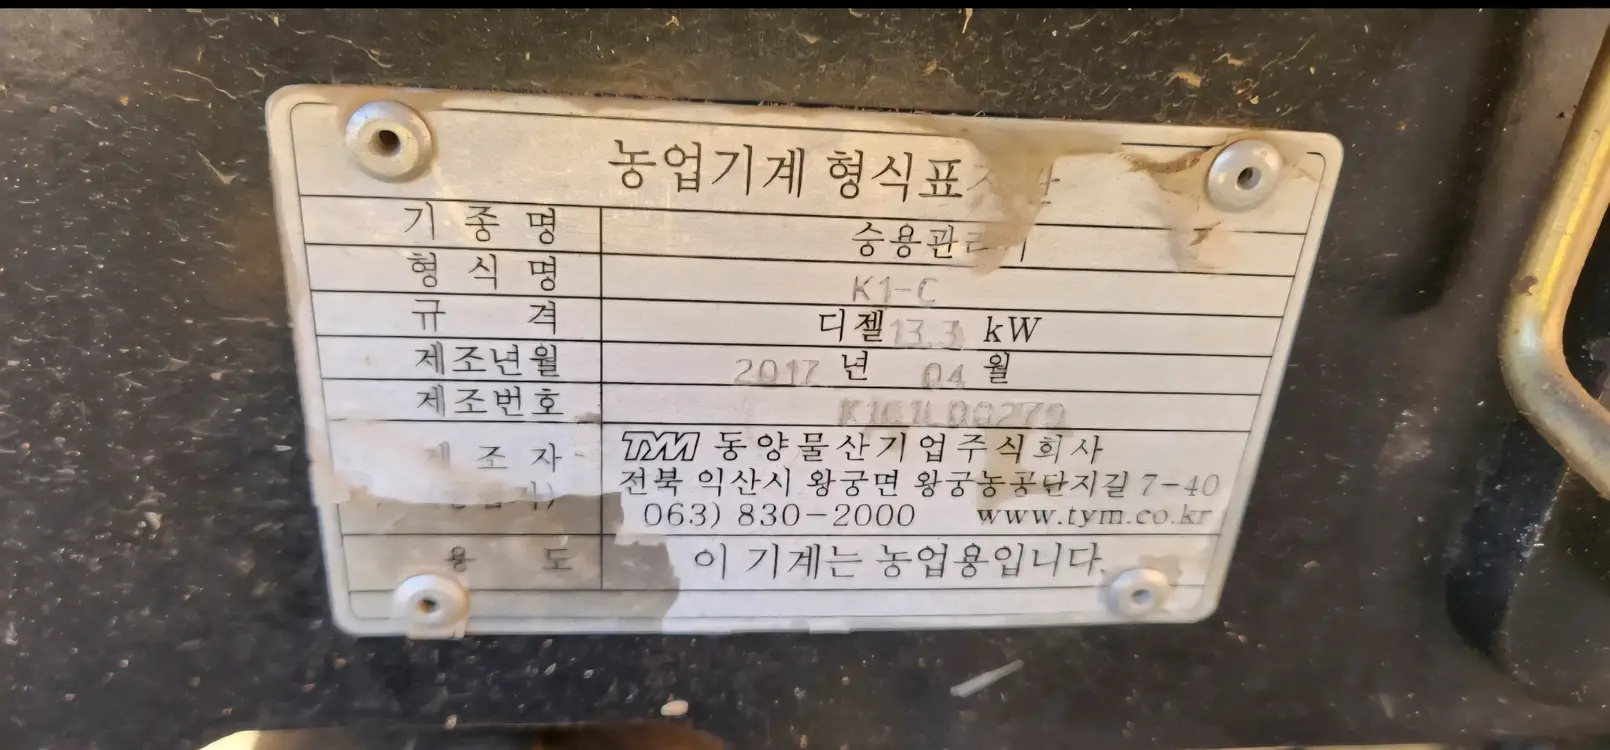 농업기계 형식표
기종명 승용관리기
형식명 K1-C
규격 디젤 13.3 kW
제조년월 2017년 04월
제조번호 K1C1L00279
제조자 TYM 동양물산기업주식회사
전북 익산시 왕궁면 왕궁농공단지길 7-40
063) 830-2000 www.tym.co.kr
용도 이 기계는 농업용입니다.